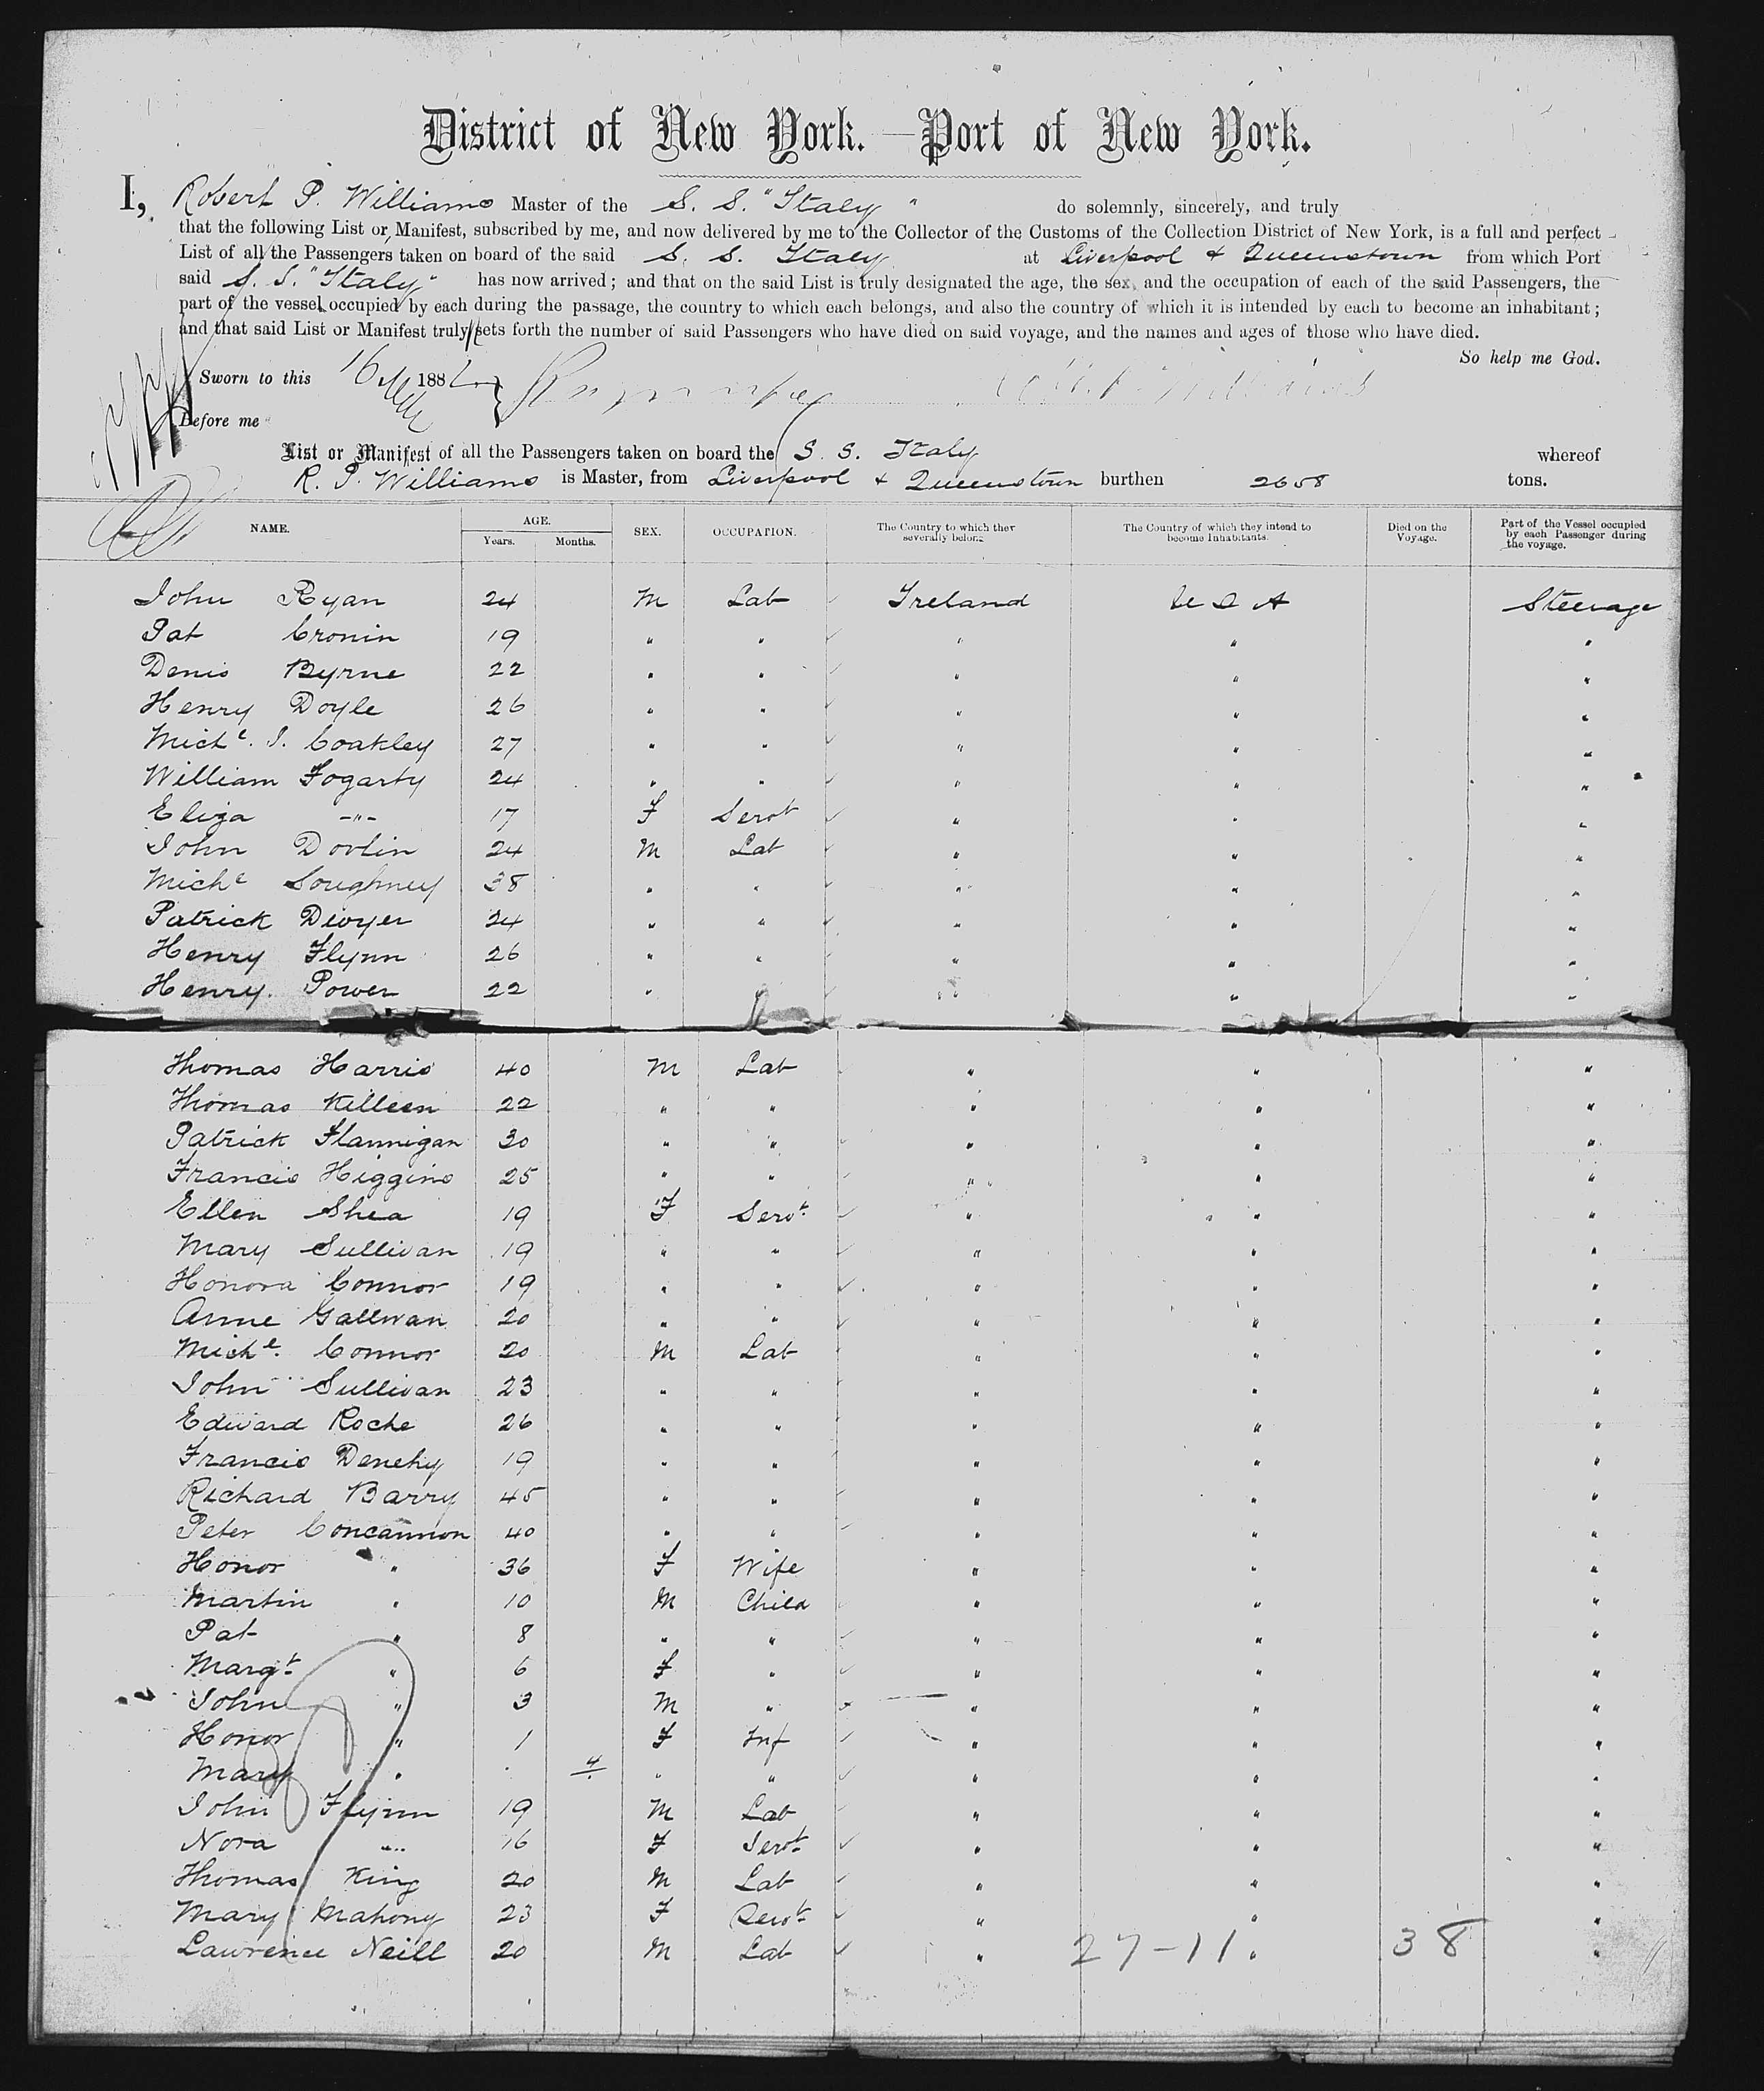 District of New York. — Port of New York.
I, Robert P. Williams Master of the S. S. "Italy" do solemnly, sincerely, and truly
that the following List or Manifest, subscribed by me, and now delivered by me to the Collector of the Customs of the Collection District of New York, is a full and perfect
List of all the Passengers taken on board of the said S. S. Italy at Liverpool & Queenstown from which Port
said S. S. "Italy" has now arrived; and that on the said List is truly designated the age, the sex, and the occupation of each of the said Passengers, the
part of the vessel occupied by each during the passage, the country to which each belongs, and also the country of which it is intended by each to become an inhabitant;
and that said List or Manifest truly sets forth the number of said Passengers who have died on said voyage, and the names and ages of those who have died.
So help me God.
Sworn to this 16 188
Before me
List or Manifest of all the Passengers taken on board the S. S. Italy whereof
R. P. Williams is Master, from Liverpool & Queenstown burthen 2658 tons.
NAME. AGE. Years. Months. SEX. OCCUPATION. The Country to which they severally belong. The Country of which they intend to become Inhabitants. Died on the Voyage. Part of the Vessel occupied by each Passenger during the voyage.
John Ryan 24 M Lab Ireland U S A Steerage
Pat Cronin 19 " " " " "
Denis Byrne 22 " " " " "
Henry Doyle 26 " " " " "
Michl. J. Coakley 27 " " " " "
William Fogarty 24 " " " " "
Eliza -"- 17 F Servt " " "
John Dovlin 24 M Lab " " "
Michl Soughney 38 " " " " "
Patrick Dwyer 24 " " " " "
Henry Flynn 26 " " " " "
Henry Power 22 " " " " "
Thomas Harris 40 M Lab " " "
Thomas Killeen 22 " " " " "
Patrick Flannigan 30 " " " " "
Francis Higgins 25 " " " " "
Ellen Shea 19 F Servt " " "
Mary Sullivan 19 " " " " "
Honora Connor 19 " " " " "
Anne Gallivan 20 " " " " "
Michl. Connor 20 M Lab " " "
John Sullivan 23 " " " " "
Edward Roche 26 " " " " "
Francis Denehy 19 " " " " "
Richard Barry 45 " " " " "
Peter Concannon 40 " " " " "
Honor " 36 F Wife " " "
Martin " 10 M Child " " "
Pat " 8 " " " " "
Margt " 6 F " " " "
John " 3 M " " " "
Honor " 1 F Inf " " "
Mary " 4 " " " " "
John Flynn 19 M Lab " " "
Nora " 16 F Servt " " "
Thomas King 20 M Lab " " "
Mary Mahony 23 F Servt " " "
Lawrence Neill 20 M Lab " 27-11 " 38 "